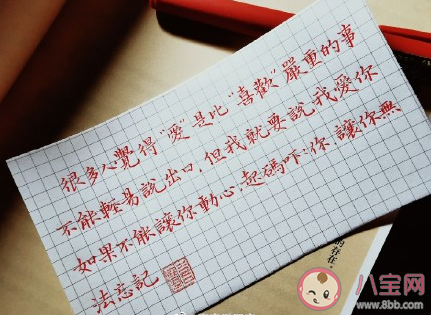 很多人覺得"愛"是比"喜歡"嚴重的事
不能輕易說出口,但我就要說我愛你
如果不能讓你動心,起碼吓:你,讓你無
法忘記
的存在
八宝网
www.8bb.com